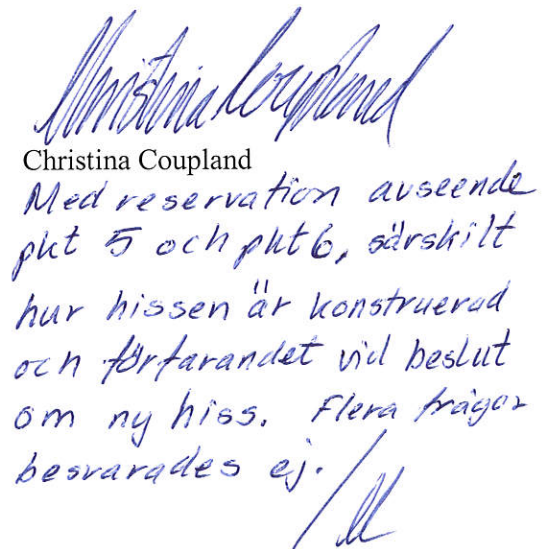 Christina Coupland
Christina Coupland
Med reservation avseende
pkt 5 och pkt 6, särskilt
hur hissen är konstruerad
och förfarandet vid beslut
om ny hiss. Flera frågor
besvarades ej.